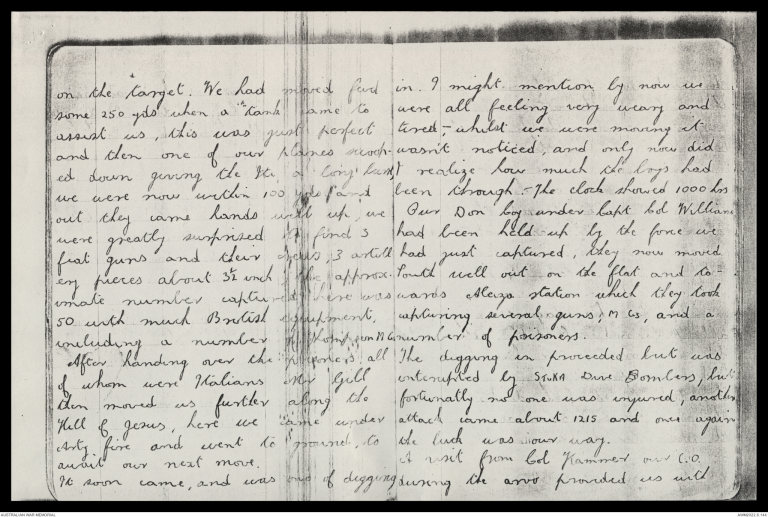 on the "target. We had moved fwd
some 250 yds when a "tank came to
assist us, this was just perfect
and then one of our planes swoop-
ed down giving the Iti a long burst,
we were now within 100 yds and
out they came hands well up, we
were greatly surprised to find 3
fiat guns and their crews, 3 artill
ery pieces about 3½ inch, the approx-
imate number captured here was
50 with much British equipment,
including a number of Thompson MGs
After handing over the prisoners, all
of whom were Italians Mr Gill
then moved us further along the
Hill of Jesus, here we came under
Arty. fire and went to ground, to
await our next move.
It soon came, and was one of digging
in. I might mention by now we
were all feeling very weary and
tired, - whilst we were moving it
wasn't noticed, and only now did
I realize how much the boys had
been through. - The clock showed 1000 hrs
Our Don Coy under Capt Col Williams
had been held up by the force we
had just captured, they now moved
South well out on the flat and to-
wards Aleiza station which they took
capturing several guns, M Cs, and a
number of poisoners.
The digging in proceeded but was
interupted by STUKA Dive Bombers, but
fortunatly no one was injured, another
attack came about 1215 and once again
the luck was our way.
A visit from Col Hammer our C.O.
during the arvo provided us with
AUSTRALIAN WAR MEMORIAL